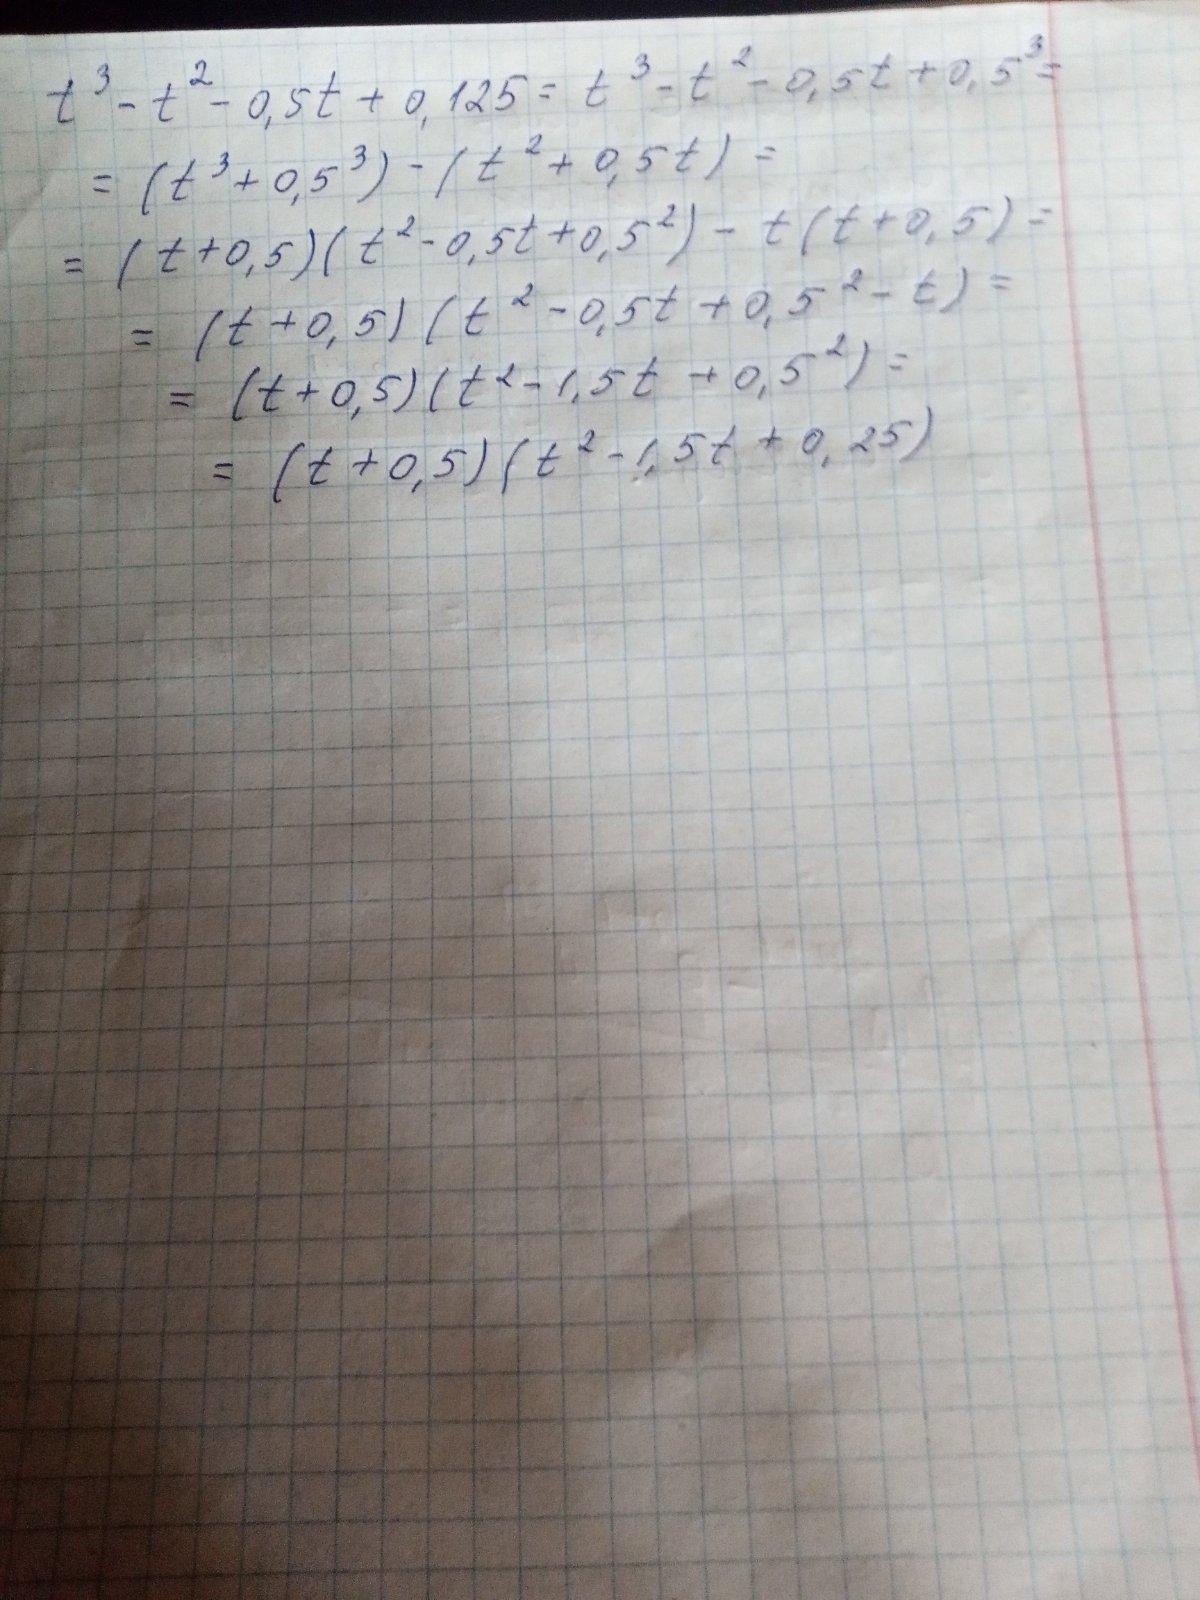 t³ - t² - 0,5t + 0,125 = t³ - t² - 0,5t + 0,5³ =
= (t³ + 0,5³) - (t² + 0,5t) =
= (t + 0,5)(t² - 0,5t + 0,5²) - t(t + 0,5) =
= (t + 0,5)(t² - 0,5t + 0,5² - t) =
= (t + 0,5)(t² - 1,5t + 0,5²) =
= (t + 0,5)(t² - 1,5t + 0,25)